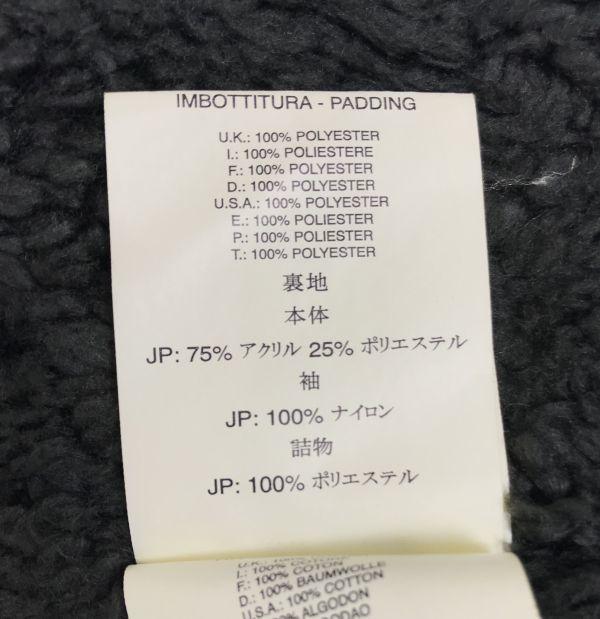 IMBOTTITURA - PADDING
U.K.: 100% POLYESTER
I.: 100% POLIESTERE
F.: 100% POLYESTER
D.: 100% POLYESTER
U.S.A.: 100% POLYESTER
E.: 100% POLIESTER
P.: 100% POLIESTER
T.: 100% POLYESTER
裏地
本体
JP: 75% アクリル 25% ポリエステル
袖
JP: 100% ナイロン
詰物
JP: 100% ポリエステル
U.K.: 100%
I.: 100% COTONE
F.: 100% COTON
D.: 100% BAUMWOLLE
U.S.A.: 100% COTTON
ALGODON